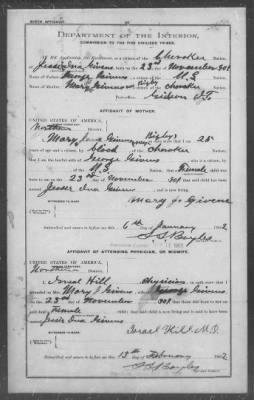 BIRTH AFFIDAVIT.
DEPARTMENT OF THE INTERIOR,
COMMISSION TO THE FIVE CIVILIZED TRIBES.
IN RE APPLICATION FOR ENROLLMENT, as a citizen of the Cherokee Nation,
of Jessie Ina Givens, born on the 23rd day of November 1901
Name of Father: George Givens a citizen of the U.S. Nation.
Name of Mother: Mary J Givens a citizen of the Cherokee Nation.
Post-office Gideon I.T.
AFFIDAVIT OF MOTHER.
UNITED STATES OF AMERICA,
Northern
Mary Jane Givens on oath state that I am 25
years of age and a citizen, by blood, of the Cherokee Nation;
that I am the lawful wife of George Givens, who is a citizen, by
U.S. Nation; that a Female child was
born to me on 23rd day of November 1901, that said child has been named
Jessie Ina Givens, and is now living.
Mary J. Givens
Subscribed and sworn to before me this 6th day of January 1902
AFFIDAVIT OF ATTENDING PHYSICIAN, OR MIDWIFE.
UNITED STATES OF AMERICA,
Northern
I, Israel Hill, a Physician, on oath state that I
attended on Mrs. Mary J Givens, wife of George Givens
on the 23rd day of November 1901, that there was born to her on said
date a Female child; that said child is now living and is said to have been named
Jessie Ina Givens
Israel Hill M.D.
Subscribed and sworn to before me this 13th day of February 1902